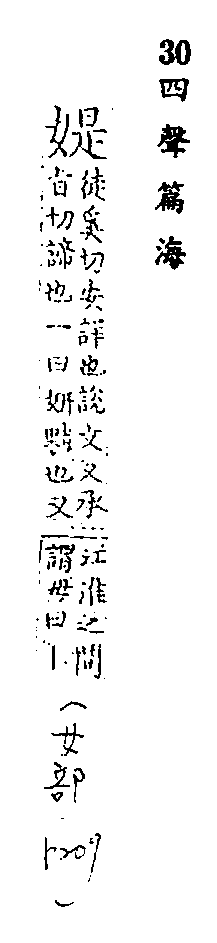 30 四聲篇海
媞
徒奚切安詳也說文又承
旨切諦也一曰妍黠也又
江淮之間
謂母曰丨
(女部 p209)